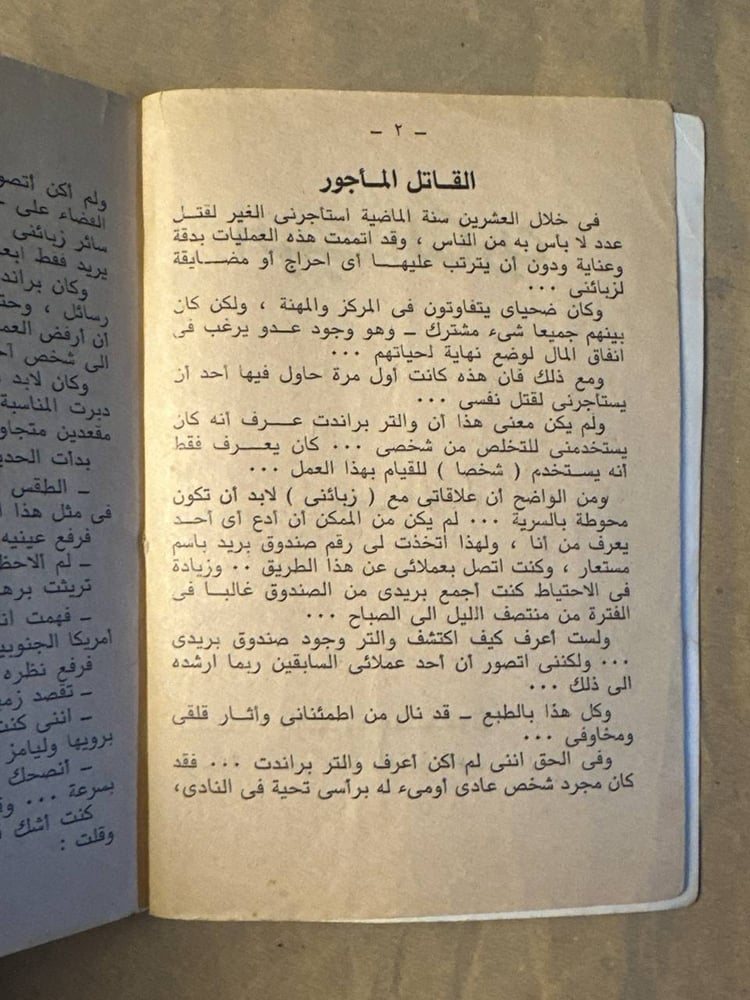 — ٢ —
القـاتل المـأجور
فى خلال العشرين سنة الماضية استأجرنى الغير لقتـل
عدد لا بأس به من الناس ، وقد اتممت هذه العمليات بدقة
وعناية ودون أن يترتب عليهـا أى احراج أو مضـايقة
لزبائنى ...
وكان ضحياى يتفاوتون فى المركز والمهنة ، ولكن كان
بينهم جميعا شىء مشترك ـ وهو وجود عـدو يرغب فى
انفاق المال لوضع نهاية لحياتهم ...
ومع ذلك فان هذه كانت أول مرة حاول فيها أحد أن
يستأجرنى لقتل نفسى ...
ولم يكن معنى هذا أن والتر براندت عـرف أنه كان
يستخدمنى للتخلص من شخصى ... كان يعـرف فقط
أنه يسـتخدم ( شخصا ) للقيام بهذا العمل ...
ومن الواضح أن علاقاتى مع ( زبائنى ) لابد أن تكون
محوطة بالسرية ... لم يكن من الممكن أن أدع أى أحـد
يعرف من أنا ، ولهذا أتخذت لى رقم صندوق بريد باسم
مستعار ، وكنت اتصل بعملائى عن هذا الطريق .. وزيادة
فى الاحتياط كنت أجمع بريدى من الصندوق غالبـا فى
الفترة من منتصف الليل الى الصباح ...
ولست أعرف كيف اكتشف والتر وجود صندوق بريدى
... ولكننى اتصور أن أحد عملائى السابقين ربما ارشده
الى ذلك ...
وكل هذا بالطبع ـ قد نال من اطمئنانى وأثـار قلقى
ومخاوفى ...
وفى الحق اننى لم أكن أعرف والتر براندت ... فقد
كان مجرد شخص عادى أومىء له برأسى تحية فى النادى،
ولم أكن أتصو
القضاء على
سائر زبائنى
يريد فقط ابعا
وكان براند
رسائل ، وحت
أن أرفض العم
الى شخص آخ
وكان لابد
دبرت المناسبة
مقعدين متجاو
بدأت الحدي
ـ الطقس
فى مثل هذا
فرفع عينيه
ـ لم ألاحظ
تريثت برهـ
ـ فهمت ان
أمريكا الجنوبية
فرفع نظره
ـ تقصد زمي
ـ اننى كنت
برويها وليامز
ـ أنصحك
بسرعة ... وق
كنت أشك
وقلت :